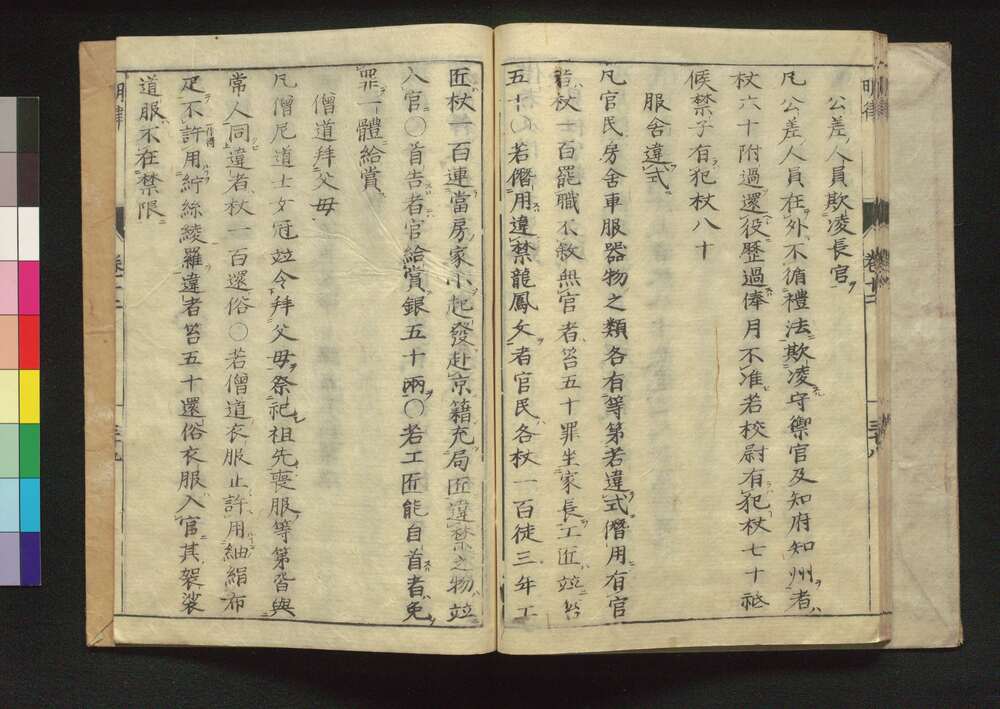 公差人員欺凌長官
凡公差人員在外不循禮法欺凌守禦官及知府知州者
杖六十附過還役歷過俸月不准若校尉有犯杖七十祗
候禁子有犯杖八十
服舍違式
凡官民房舍車服器物之類各有等第若違式僭用有官
者杖一百罷職不敘無官者笞五十罪坐家長工匠並笞
五十〇若僭用違禁龍鳳文者官民各杖一百徒三年工
匠杖一百連當房家小起發赴京籍充局匠違禁之物並
入官〇首告者官給賞銀五十兩〇若工匠能自首者免
罪一體給賞
僧道拜父母
凡僧尼道士女冠並令拜父母祭祀祖先喪服等第皆與
常人同違者杖一百還俗〇若僧道衣服止許用紬絹布
疋不許用紵絲綾羅違者笞五十還俗衣服入官其袈裟
道服不在禁限
明律
卷十二
明律
卷十二